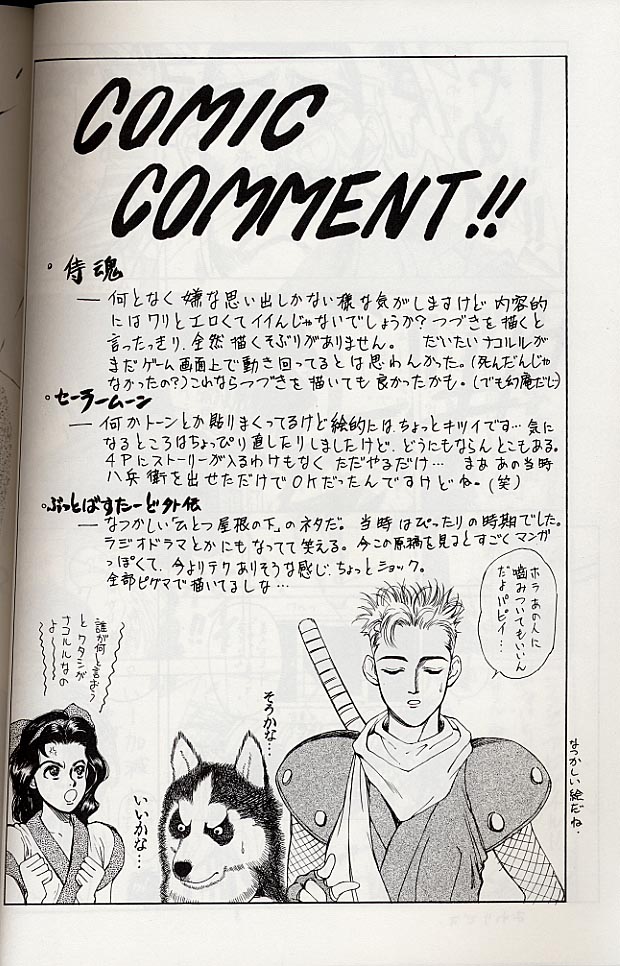 COMIC
COMMENT!!
。侍魂
― 何となく嫌な思い出しかない様な気がしますけど 内容的
にはワリとエロくてイイんじゃないでしょうか? つづきを描くと
言ったっきり、全然描くそぶりがありません。 だいたいナコルルが
まだゲーム画面上で動き回ってるとは思わんかった。(死んだんじゃ
なかったの?)これならつづきを描いても良かったかも。(でも幻庵だし)
。セーラームーン
― 何かトーンとか貼りまくってるけど絵的には、ちょっとキツイです… 気に
なるところはちょっぴり直したりしましたけど、どうにもならんとこもある。
4Pにストーリーが入るわけもなく ただやるだけ… まあ あの当時
八兵衛を出せただけでOKだったんですけどね。(笑)
。ぶっとばすたーど外伝
― なつかしい「ひとつ屋根の下」のネタだ。 当時はぴったりの時期でした。
ラジオドラマとかにもなってて笑える。今この原稿を見るとすごくマンガ
っぽくて、今よりテクありそうな感じ、ちょっとショック。
全部ピグマで描いてるしな…
ホラ あの人に
噛みついてもいいん
だよパピィ…
誰が何と言おう
とワタシが
ナコルルなの
よ〜
そうかな…
いいかな…
なつかしい絵だね.